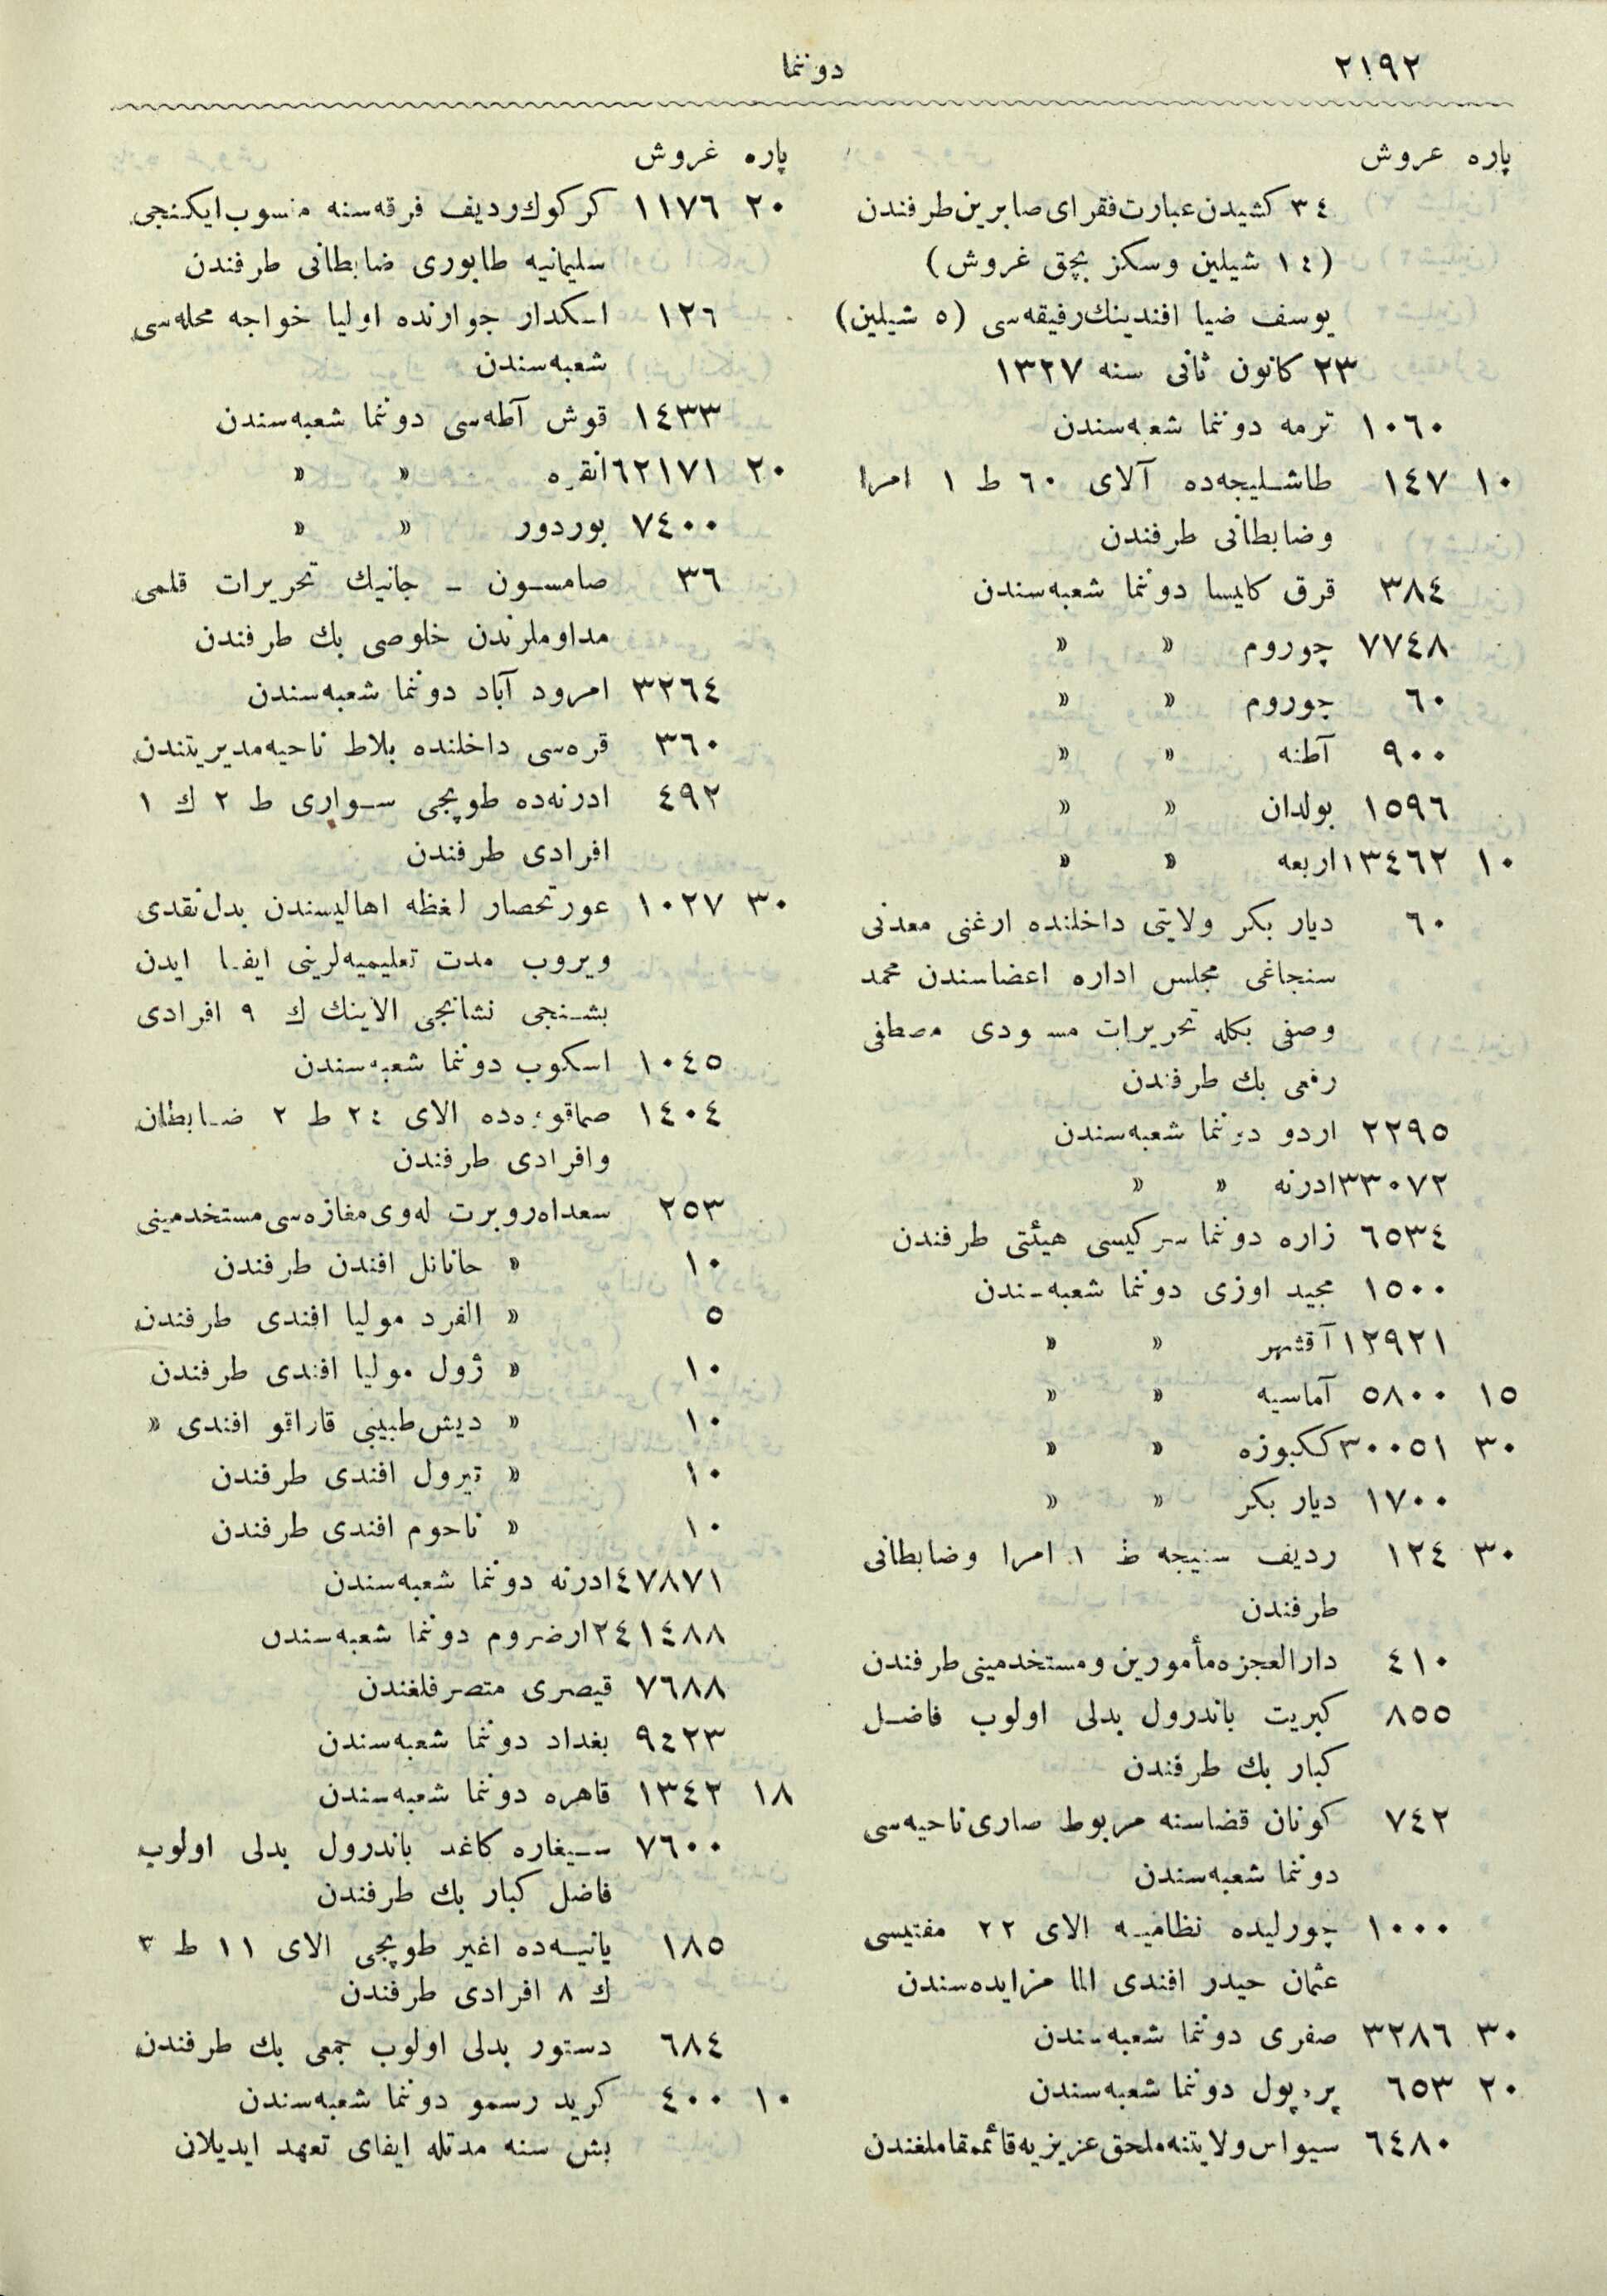 ٢١٩٢
دوننما
پاره غروش
٣٤ کشیدن عبارت فقرای صابرین طرفندن
(١٤ شیلین وسکز بچق غروش)
یوسف ضیا افندینك رفیقه‌سی (٥ شیلین)
٢٣ کانون ثانی سنه ١٣٢٧
١٠٦٠ ترمه دوننما شعبه‌سندن
١٠ ١٤٧ طاشلیجه‌ده آلای ٦٠ ط ١ امرا
وضابطانی طرفندن
٣٨٤ قرق کلیسا دوننما شعبه‌سندن
٧٧٤٨ چوروم » »
٦٠ چوروم » »
٩٠٠ آطنه » »
١٥٩٦ بولدان » »
١٠ ١٣٤٦٢ اربعه » »
٦٠ دیار بکر ولایتی داخلنده ارغنی معدنی
سنجاغی مجلس اداره اعضاسندن محمد
وصفی بکله تحریرات مسودی مصطفی
رفعی بك طرفندن
٢٢٩٥ اردو دوننما شعبه‌سندن
٣٣٠٧٢ ادرنه » »
٦٥٣٤ زاره دوننما سرکیسی هیئتی طرفندن
١٥٠٠ مجید اوزی دوننما شعبه‌سندن
١٢٩٢١ آقشهر » »
١٥ ٥٨٠٠ آماسیه » »
٣٠ ٣٠٠٥١ ککبوزه » »
١٧٠٠ دیار بکر » »
٣٠ ١٢٤ ردیف سنیجه ط ١ امرا وضابطانی
طرفندن
٤١٠ دارالعجزه مأمورین ومستخدمینی طرفندن
٨٥٥ کبریت باندرول بدلی اولوب فاضل
کبار بك طرفندن
٧٤٢ کونان قضاسنه مربوط صاری ناحیه‌سی
دوننما شعبه‌سندن
١٠٠٠ چورلیده نظامیه الای ٢٢ مفتیسی
عثمان حیدر افندی الما مزایده‌سندن
٣٠ ٣٢٨٦ صفری دوننما شعبه‌سندن
٢٠ ٦٥٣ پره‌پول دوننما شعبه‌سندن
٦٤٨٠ سیواس ولایتنه ملحق عزیزیه قائممقاملغندن
پاره غروش
٢٠ ١١٧٦ کرکوك ردیف فرقه‌سنه منسوب ایکنجی
سلیمانیه طابوری ضابطانی طرفندن
١٢٦ اسکدار جوارنده اولیا خواجه محله‌سی
شعبه‌سندن
١٤٣٣ قوش آطه‌سی دوننما شعبه‌سندن
٢٠ ٦٢١٧١ انقره » »
٧٤٠٠ بوردور » »
٣٦ صامسون - جانیك تحریرات قلمی
مداوملرندن خلوصی بك طرفندن
٣٢٦٤ امرود آباد دوننما شعبه‌سندن
٣٦٠ قره‌سی داخلنده بلاط ناحیه مدیریتندن
٤٩٢ ادرنه‌ده طوپجی سواری ط ٢ ك ١
افرادی طرفندن
٣٠ ١٠٢٧ عورتحصار لغظه اهالیسندن بدل نقدی
ویروب مدت تعلیمیه‌لرینی ایفا ایدن
بشنجی نشانجی الاینك ك ٩ افرادی
١٠٤٥ اسکوب دوننما شعبه‌سندن
١٤٠٤ صماقوده الای ٢٤ ط ٢ ضابطان
وافرادی طرفندن
٢٥٣ سعداه روبرت له‌وی مغازه‌سی مستخدمینی
١٠ » حانانل افندن طرفندن
٥ » الفرد مولیا افندی طرفندن
١٠ » ژول مولیا افندی طرفندن
١٠ » دیش طبیبی قاراقو افندی »
١٠ » تیرول افندی طرفندن
١٠ » ناحوم افندی طرفندن
٤٧٨٧١ ادرنه دوننما شعبه‌سندن
٢٤١٤٨٨ ارضروم دوننما شعبه‌سندن
٧٦٨٨ قیصری متصرفلغندن
٩٤٢٣ بغداد دوننما شعبه‌سندن
١٨ ١٣٤٢ قاهره دوننما شعبه‌سندن
٧٦٠٠ سیغاره کاغد باندرول بدلی اولوب
فاضل کبار بك طرفندن
١٨٥ یانیه‌ده اغیر طوپجی الای ١١ ط ٣
ك ٨ افرادی طرفندن
٦٨٤ دستور بدلی اولوب جمعی بك طرفندن
١٠ ٤٠٠ کرید رسمو دوننما شعبه‌سندن
بش سنه مدتله ایفای تعهد ایدیلان